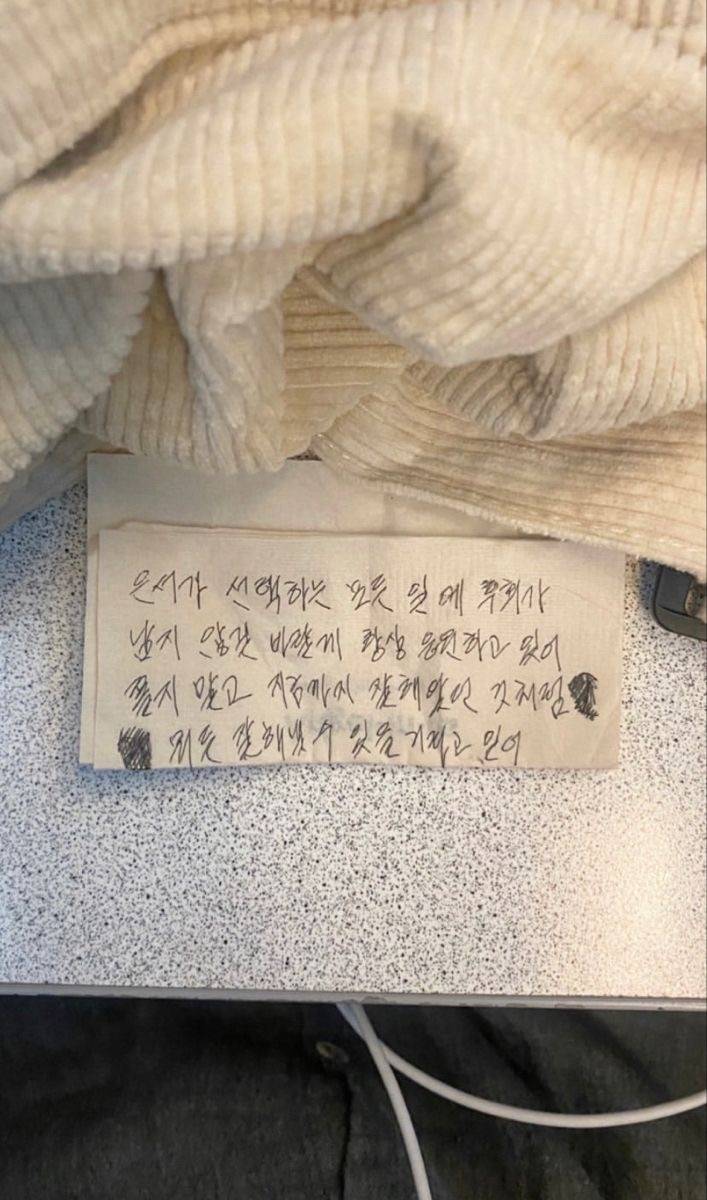 은서가 선택하는 모든 일에 후회가
남지 않길 바랄게 항상 응원하고 있어
쫄지 말고 지금까지 잘해왔던 것처럼
뭐든 잘해낼 수 있을거라고 믿어